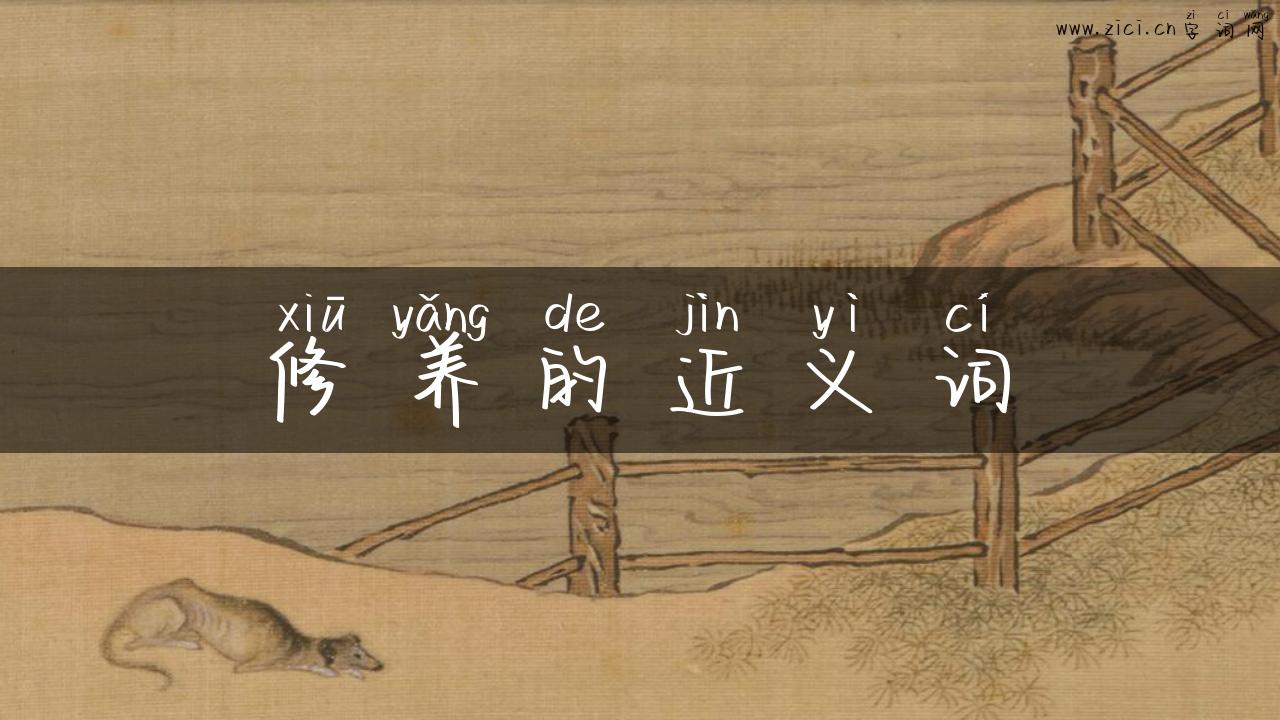 zì cí wǎng
www.zici.cn 字词网
xiū yǎng de jìn yì cí
修养的近义词